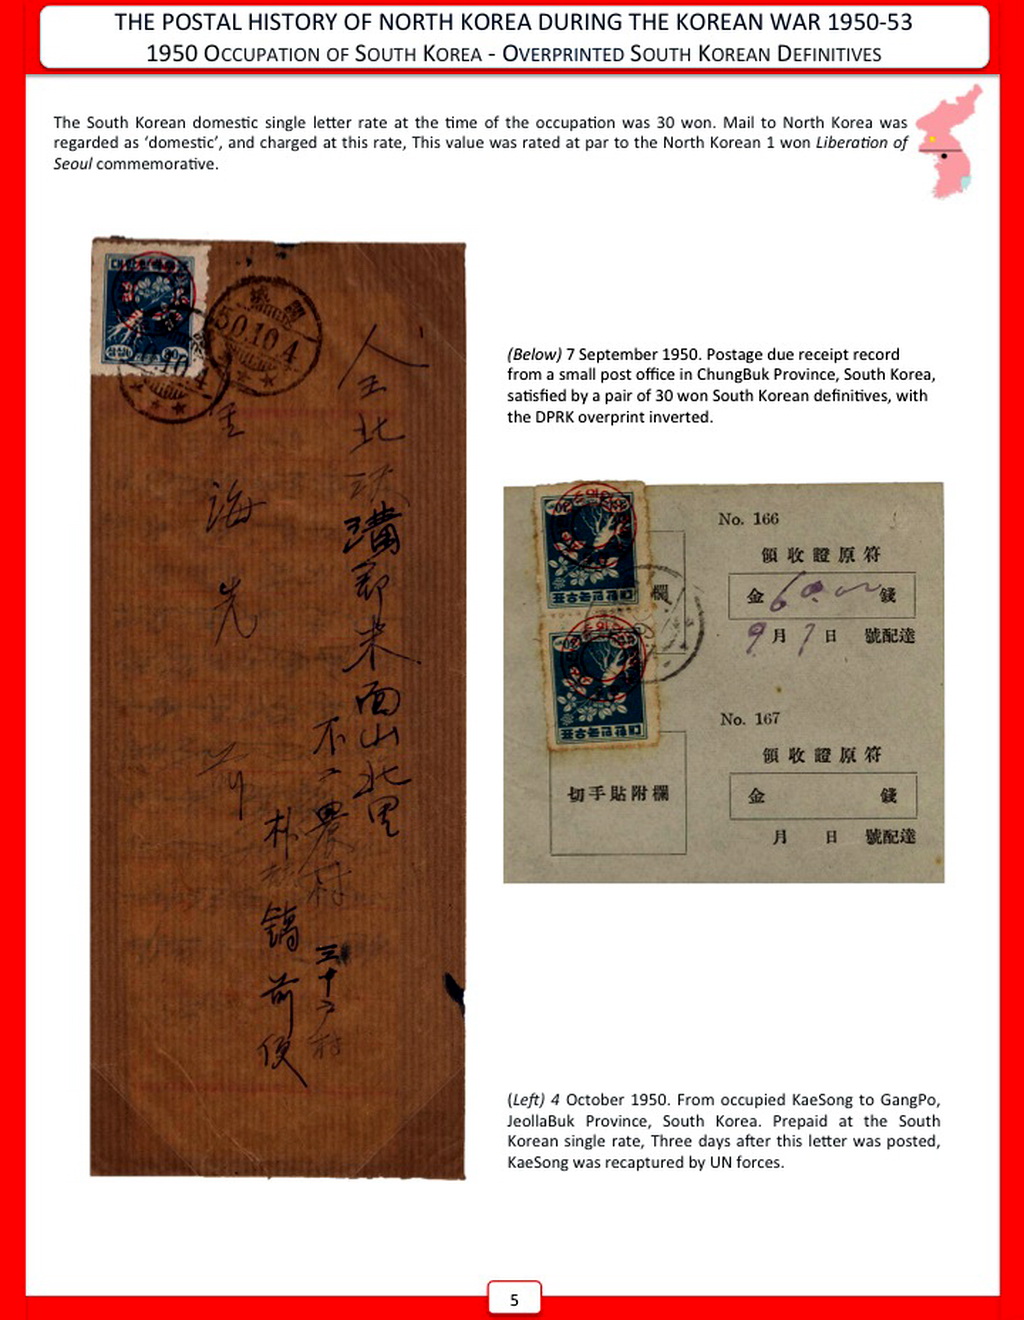 THE POSTAL HISTORY OF NORTH KOREA DURING THE KOREAN WAR 1950-53
1950 OCCUPATION OF SOUTH KOREA - OVERPRINTED SOUTH KOREAN DEFINITIVES
The South Korean domestic single letter rate at the time of the occupation was 30 won. Mail to North Korea was
regarded as ‘domestic’, and charged at this rate, This value was rated at par to the North Korean 1 won Liberation of
Seoul commemorative.
50.10.4
海
先
前
北
溝郡米面山北里
農村
三十
朴
鎬
前
便
(Below) 7 September 1950. Postage due receipt record
from a small post office in ChungBuk Province, South Korea,
satisfied by a pair of 30 won South Korean definitives, with
the DPRK overprint inverted.
대한민국우표
대한민국우표
欄
No. 166
領收證原符
金 60.00 錢
9月7日 號配達
No. 167
領收證原符
金 錢
月 日 號配達
切手貼附欄
(Left) 4 October 1950. From occupied KaeSong to GangPo,
JeollaBuk Province, South Korea. Prepaid at the South
Korean single rate, Three days after this letter was posted,
KaeSong was recaptured by UN forces.
5